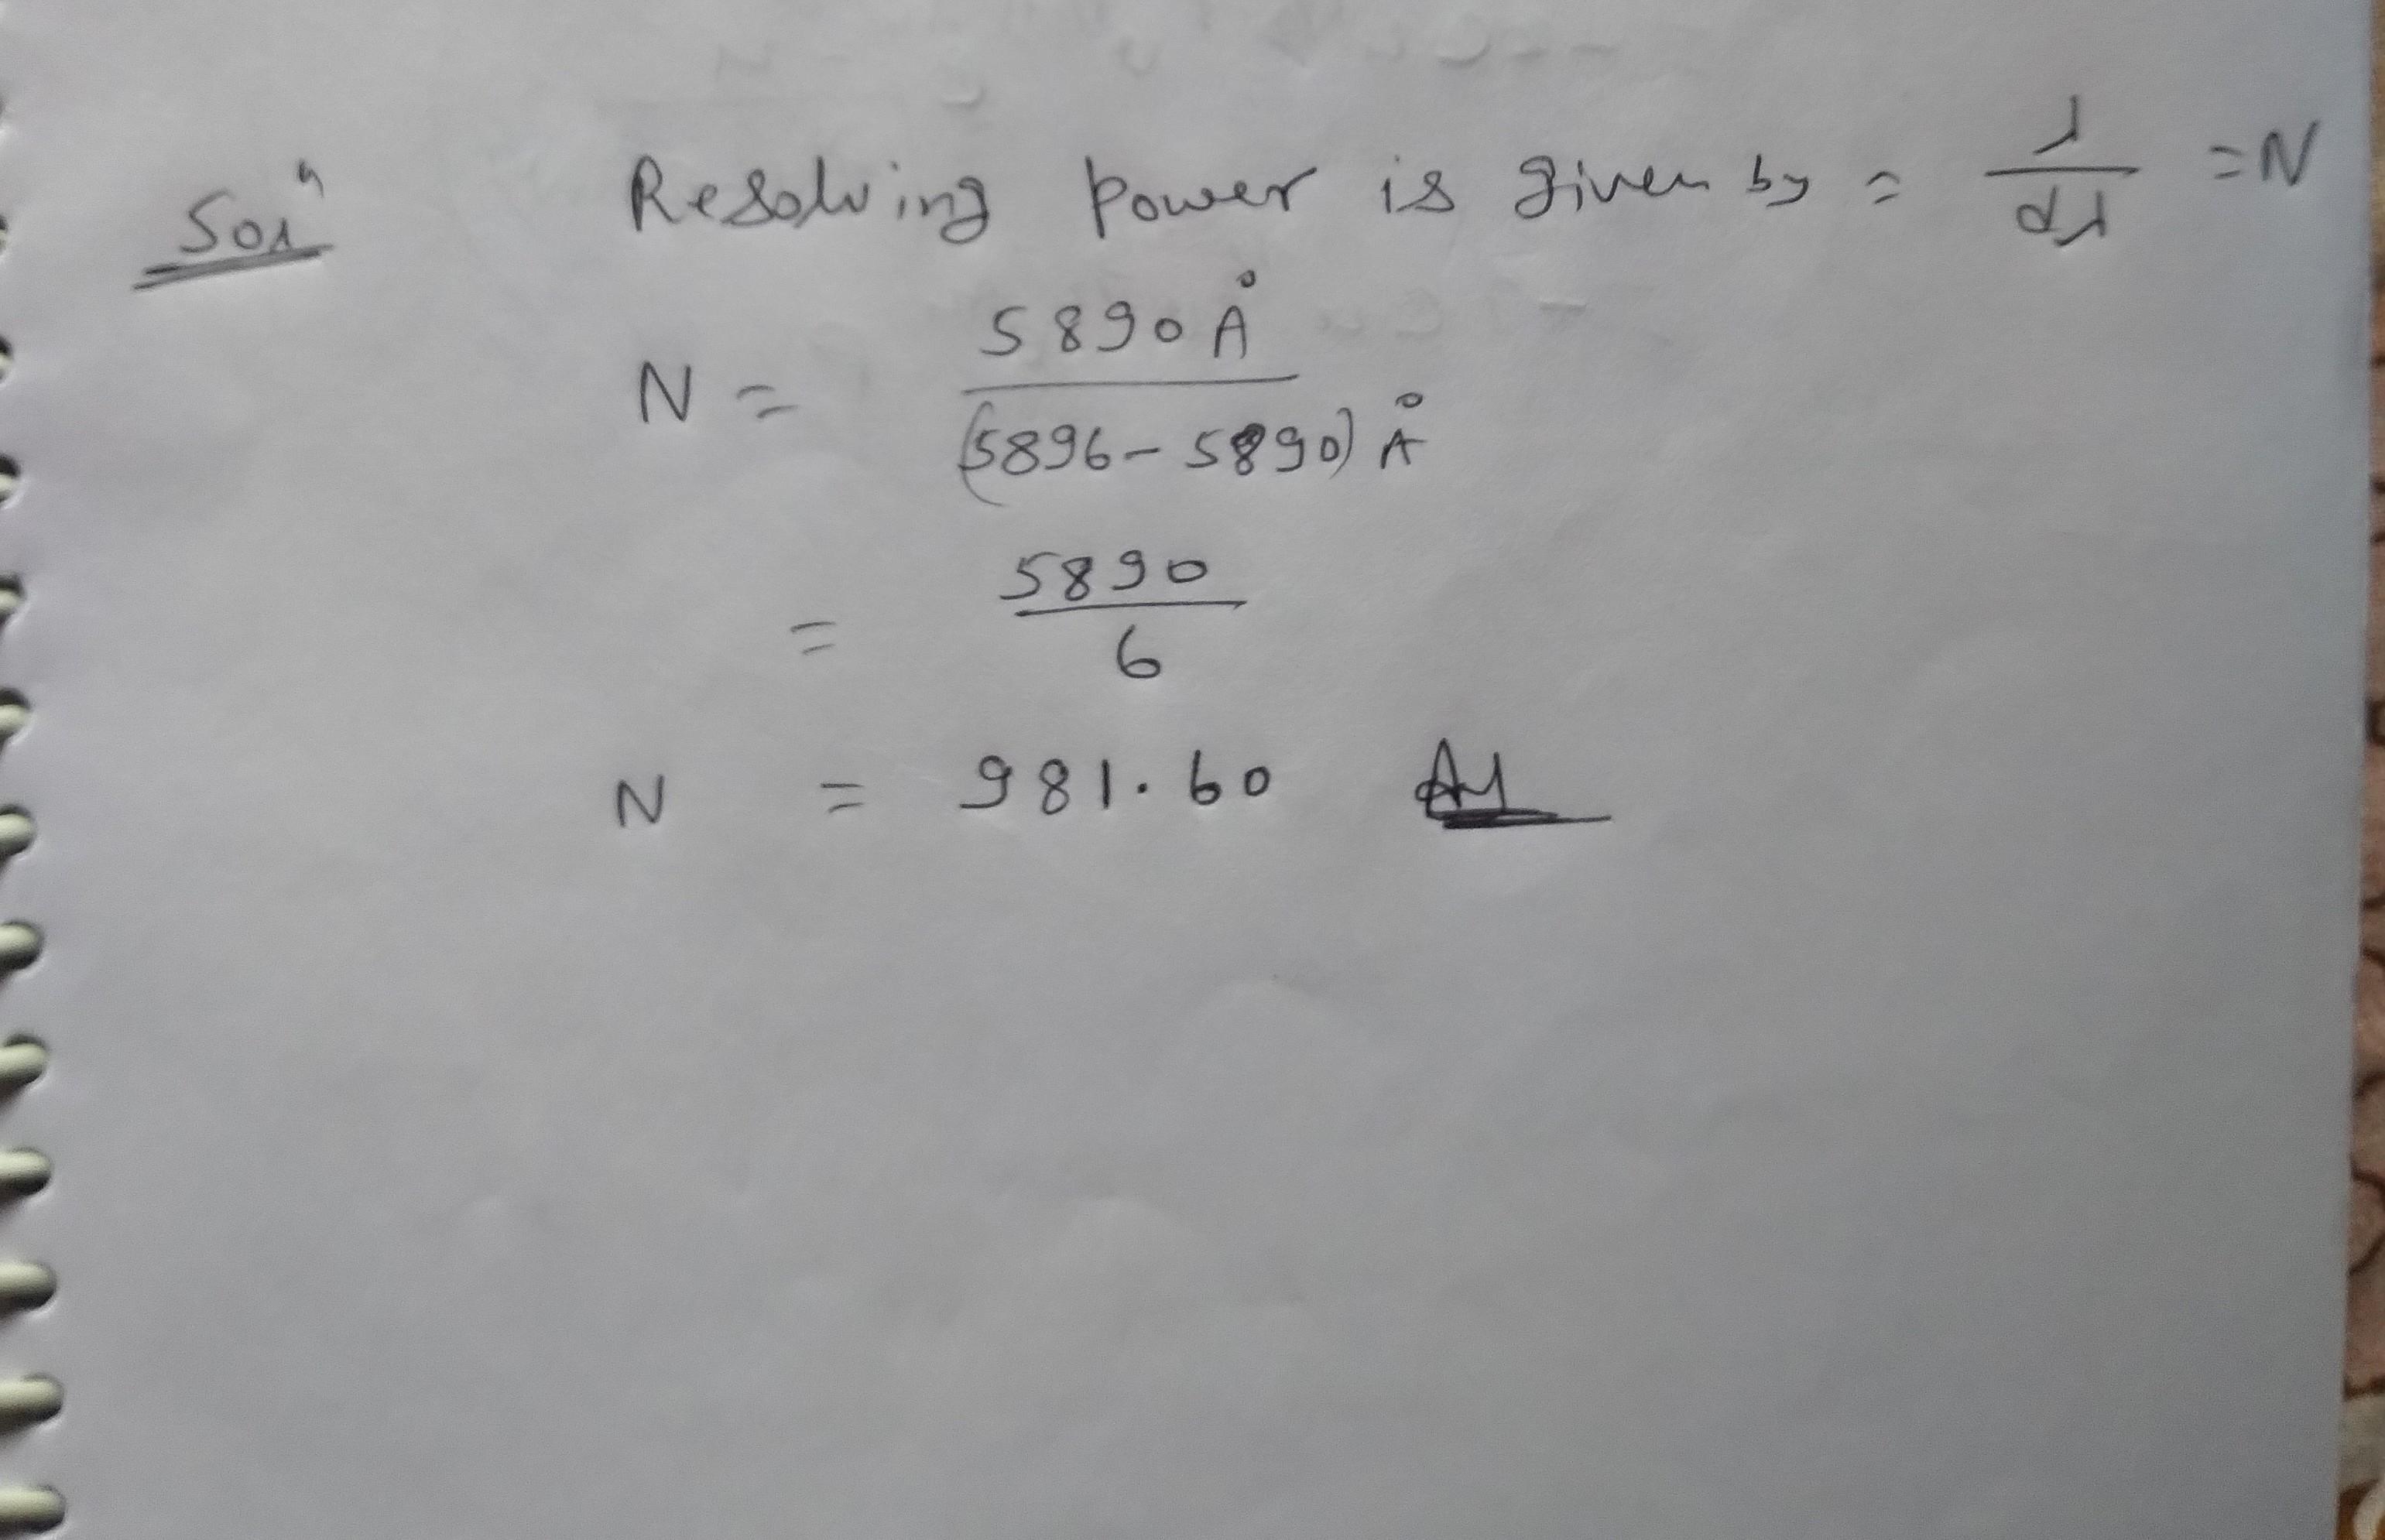 Solⁿ Resolving power is given by = λ/dλ = N
N = 5890 Å / (5896 - 5890) Å
= 5890 / 6
N = 981.60 Ans